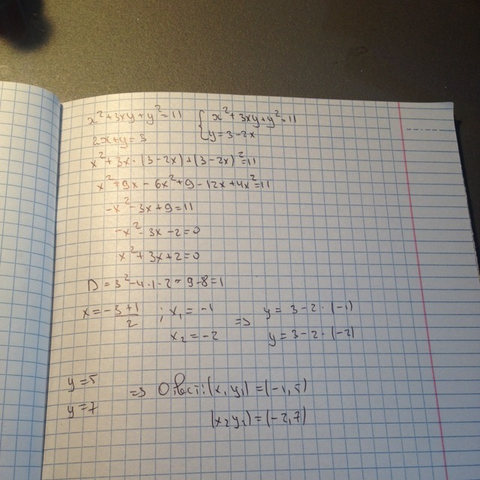 x²+3xy+y²=11 { x²+3xy+y²=11
2x+y=3 y=3-2x
x²+3x·(3-2x)+(3-2x)²=11
x²+9x-6x²+9-12x+4x²=11
-x²-3x+9=11
-x²-3x-2=0
x²+3x+2=0
D=3²-4·1·2=9-8=1
x=-3±1/2 ; x₁=-1 => y=3-2·(-1)
x₂=-2 y=3-2·(-2)
y=5 => Ответ: (x,y₁)=(-1,5)
y=7 (x₂y₂)=(-2,7)